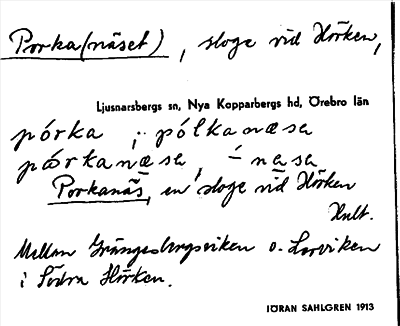 Porka(näset), sloge vid Hörken,
Ljusnarsbergs sn, Nya Kopparbergs hd, Örebro län
pórka ; pólkanæsa
pórkanæsa, ´- næsa
Porkanäs, en sloge vid Hörken
Hult.
Mellan Grängesbergsviken o. Lorviken
i Södra Hörken.
IÖRAN SAHLGREN 1913